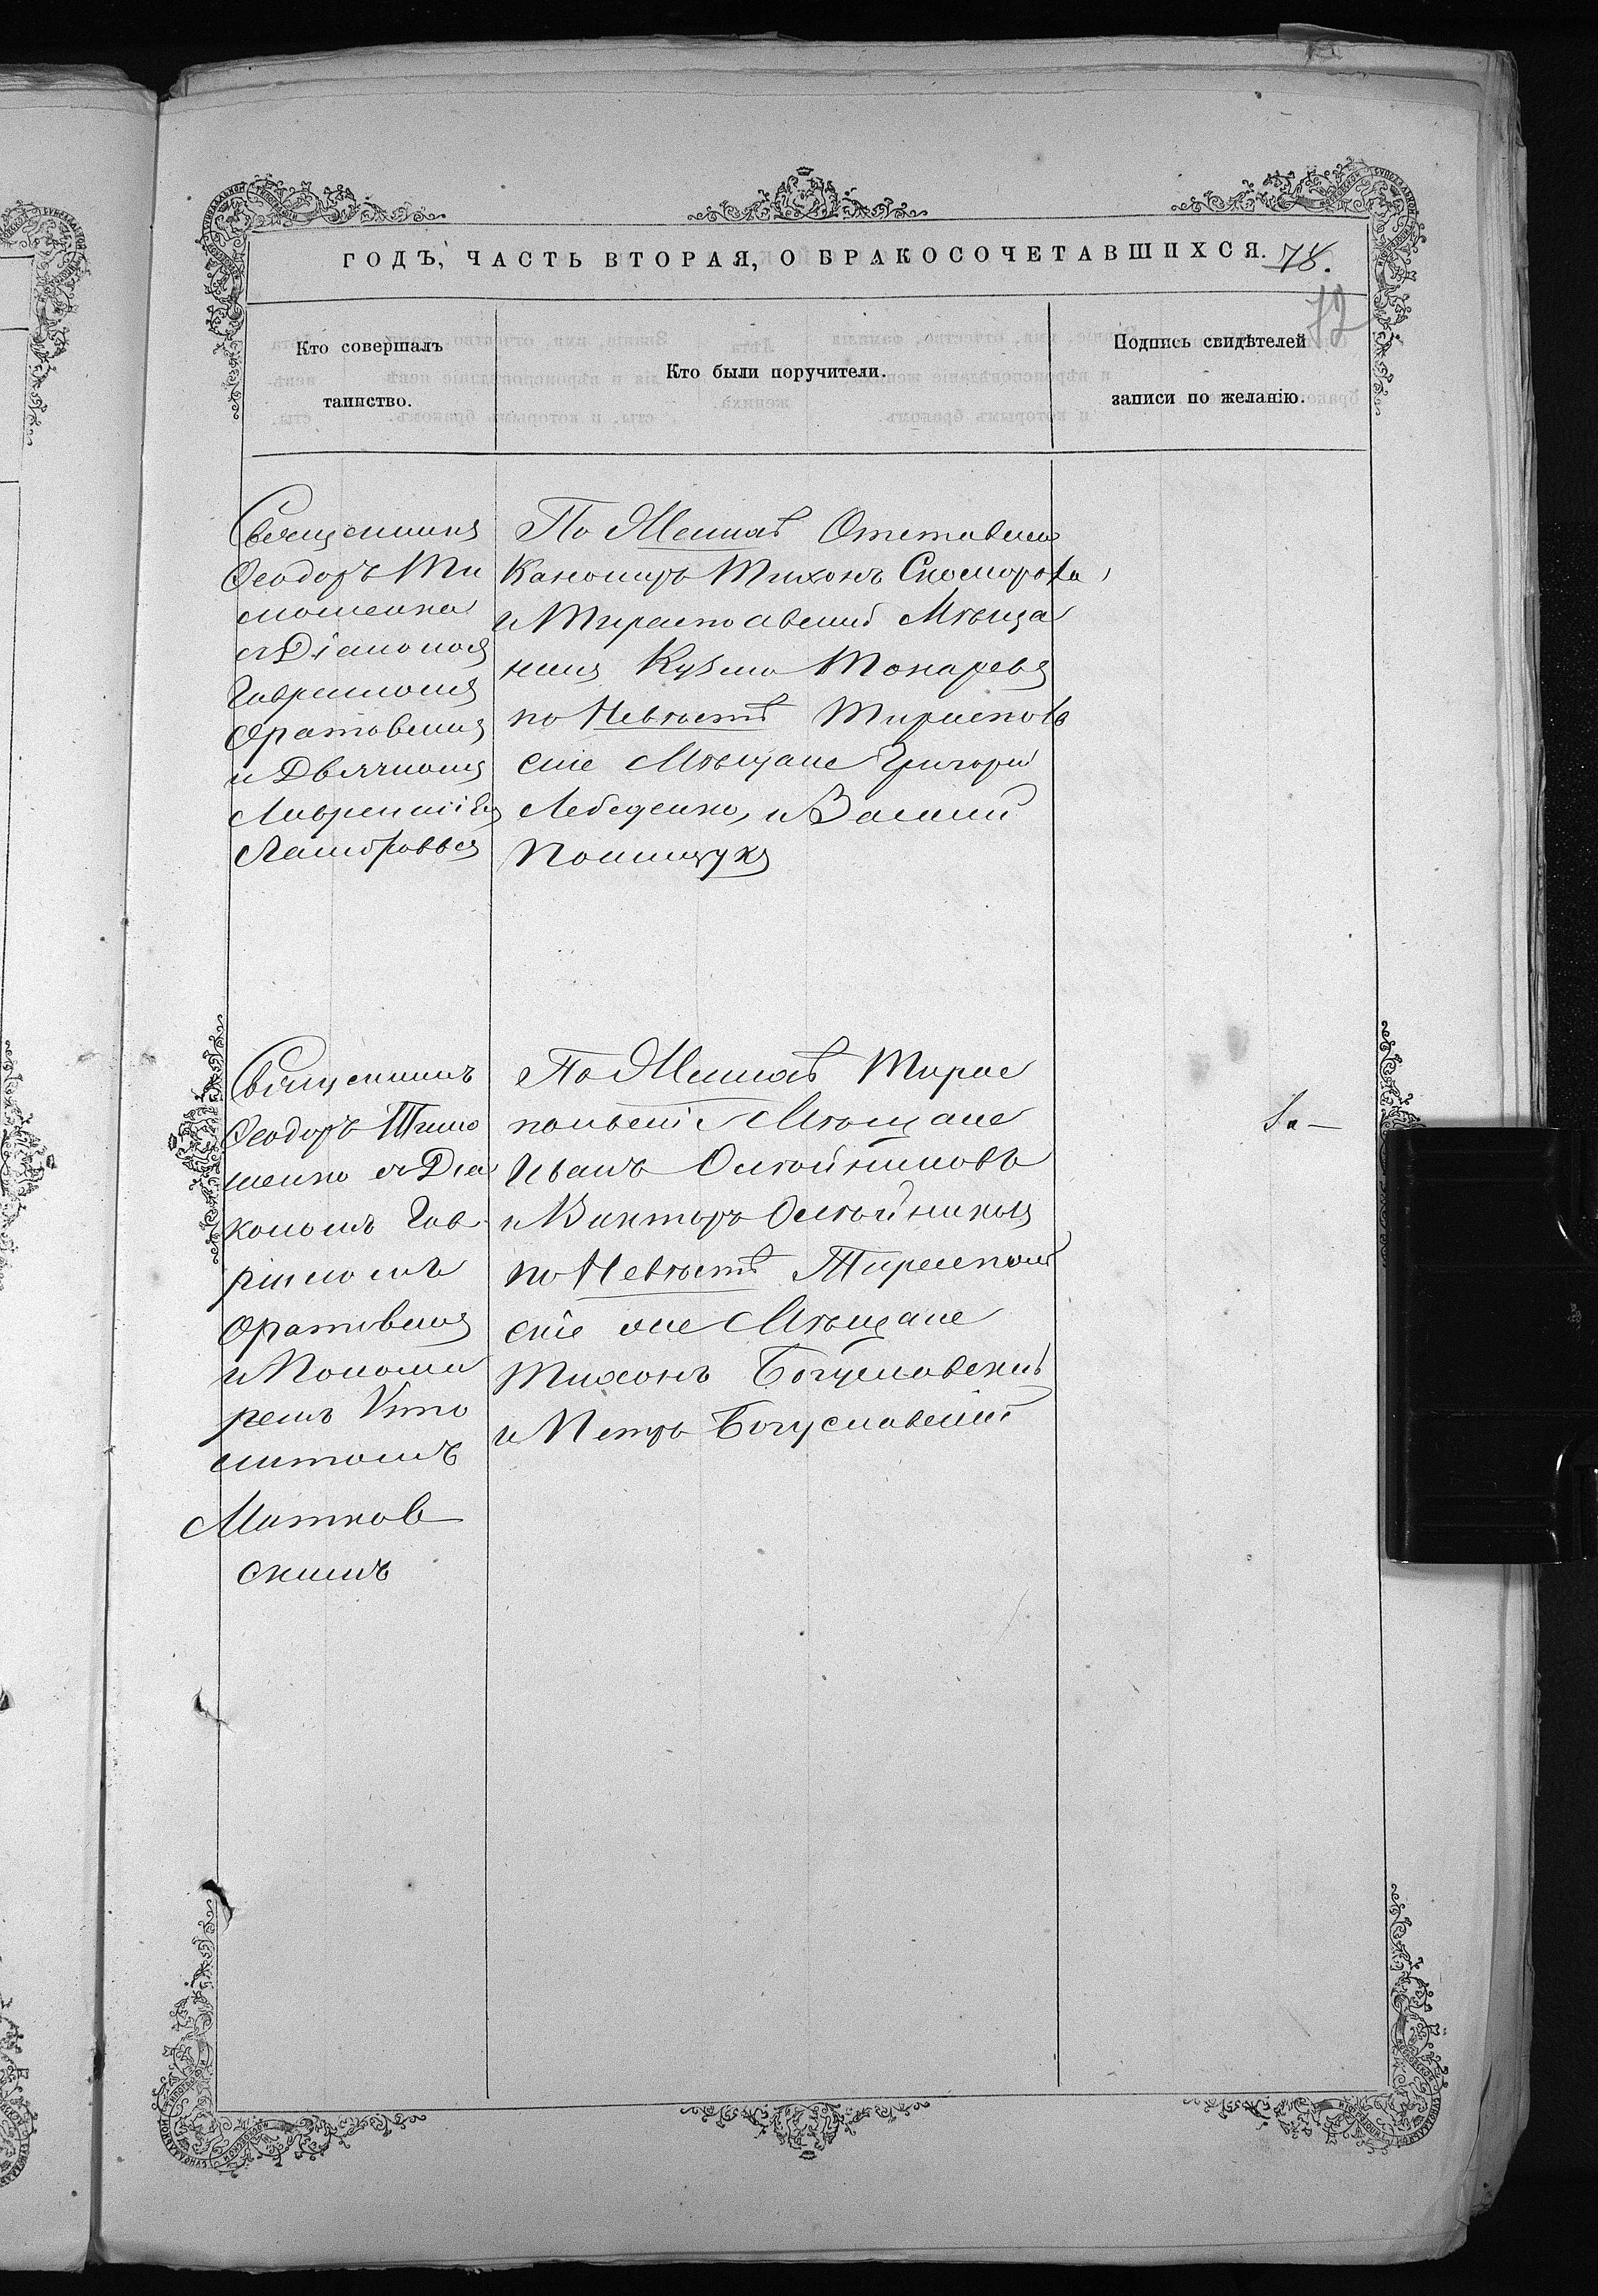 ГОДЪ, ЧАСТЬ ВТОРАЯ, О БРАКОСОЧЕТАВШИХСЯ. 78.
72
Кто совершалъ
таинство.
Кто были поручители.
Подпись свидѣтелей
записи по желанію.
Священникъ
Ѳеодоръ Ти
мошенко
съ Діакономъ
Гавріиломъ
Оратовскимъ
и Дьячкомъ
Лаврентіемъ
По Женихѣ Отставной
Канониръ Тихонъ Скомороха,
и Тираспольскій Мѣща
нинъ Кузьма Токаревъ
по Невѣстѣ Тирасполь
скіе Мѣщане Григорій
Лебеденко, и Василій
Полищукъ
Священникъ
Ѳеодоръ Тимо
шенко съ Діа
кономъ Гав
ріиломъ
Оратовскимъ
и Понома
ремъ Иппо
литомъ
Митков
скимъ
По Женихѣ Тирас
польскіе Мѣщане
Иванъ Олейниковъ
и Викторъ Олейниковъ
по Невѣстѣ Тирасполь
скіе же Мѣщане
Тихонъ Богуславскій
и Петръ Богуславскій